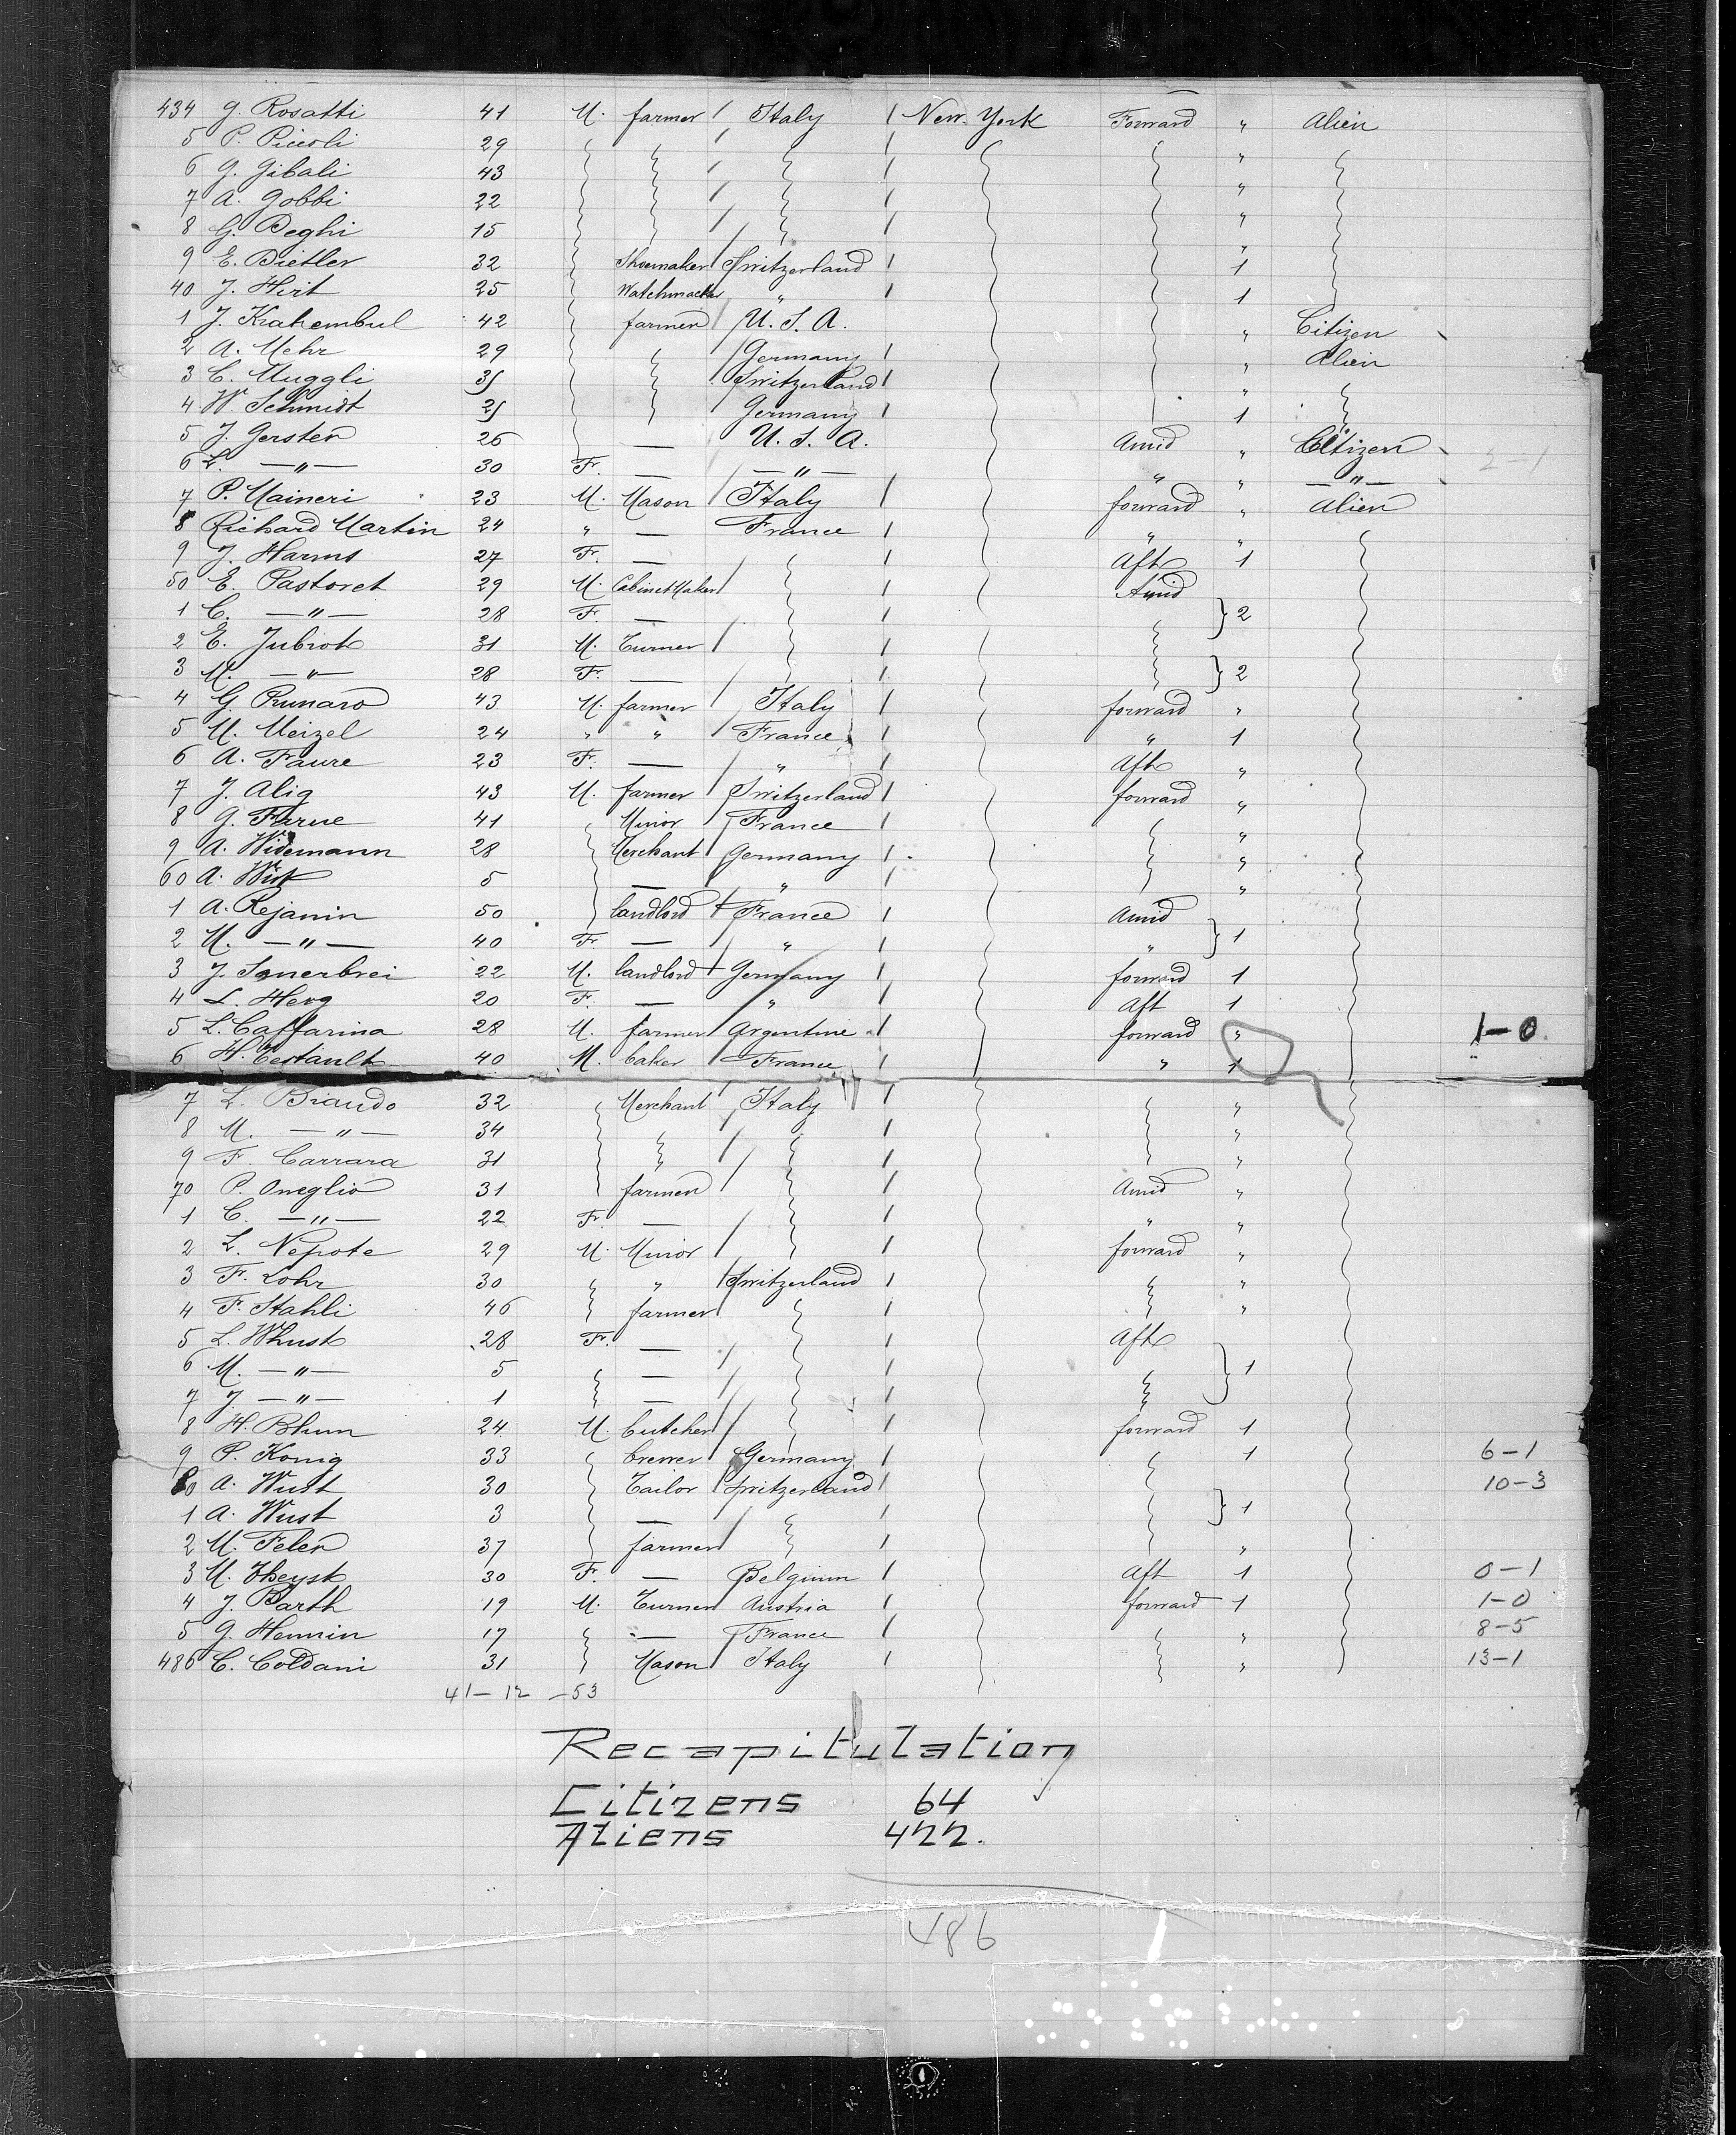 434 G. Rosatti 41 M. farmer / Italy / New York Forward " Alien
5 P. Piccoli 29 / / "
6 G. Gibali 43 / / "
7 A. Gobbi 22 / / "
8 G. Deghi 15 / / "
9 E. Dietler 32 Shoemaker / Switzerland / 1
40 J. Hirt 25 Watchmacker / " / 1
1 J. Krahembul 42 farmer / U.S.A. " Citizen
2 A. Mehr 29 / Germany / " Alien
3 C. Muggli 35 / Switzerland / "
4 W. Schmidt 25 Germany / 1
5 J. Gerster 26 — U.S.A. Amid " Citizen
6 L. —"— 30 Fr. — —"— " " —"—
7 P. Maineri 23 M. Mason / Italy / forward " Alien
8 Richard Martin 24 " — France / " "
9 J. Harms 27 Fr. — / Aft 1
50 E. Pastoret 29 M. Cabinet Maker / / Amid
1 C. —"— 28 Fr. — / } 2
2 E. Jubiot 31 M. Turner / /
3 M. —"— 28 Fr. — / / } 2
4 G. Prunaro 43 M. farmer / Italy / forward "
5 M. Meizel 24 " " / France / " 1
6 A. Faure 23 Fr. — / " / Aft "
7 J. Alig 43 M. farmer / Switzerland / forward "
8 G. Farue 41 Minor / France / "
9 A. Widemann 28 Merchant / Germany / "
60 A. Wist 5 — " / "
1 A. Rejanin 50 landlord / France / Amid
2 M. —"— 40 Fr. — / " / " } 1
3 J. Sauerbrei 22 M. landlord / Germany / forward 1
4 L. Herg 20 Fr. — / " / Aft 1
5 L. Caffarina 28 M. farmer / Argentine / forward " 1-0
6 H. Testault 40 M. baker / France / " 1
7 L. Biando 32 Merchant / Italy / "
8 M. —"— 34 / / "
9 F. Carrara 31 " / / "
70 P. Oneglio 31 farmer / / Amid "
1 C. —"— 22 Fr. — / / " "
2 L. Nepote 29 M. Minor / / forward "
3 F. Lohr 30 " " / Switzerland / "
4 F. Stahli 46 farmer / / "
5 L. Whust 28 Fr. — / / Aft
6 M. —"— 5 — / / } 1
7 J. —"— 1 — / /
8 H. Blum 24 M. butcher / / forward 1
9 P. Konig 33 brewer / Germany / 1 6-1
80 A. Wust 30 Tailor / Switzerland / 10-3
1 A. Wust 3 — / / } 1
2 M. Feler 37 farmer / / "
3 M. Theyst 30 Fr. — Belgium / Aft 1 0-1
4 J. Barth 19 M. Turner Austria / forward 1 1-0
5 G. Hennin 17 — / France / " 8-5
486 C. Coldani 31 Mason / Italy / " 13-1
41-12-53
Recapitulation
Citizens 64
Aliens 422.
486